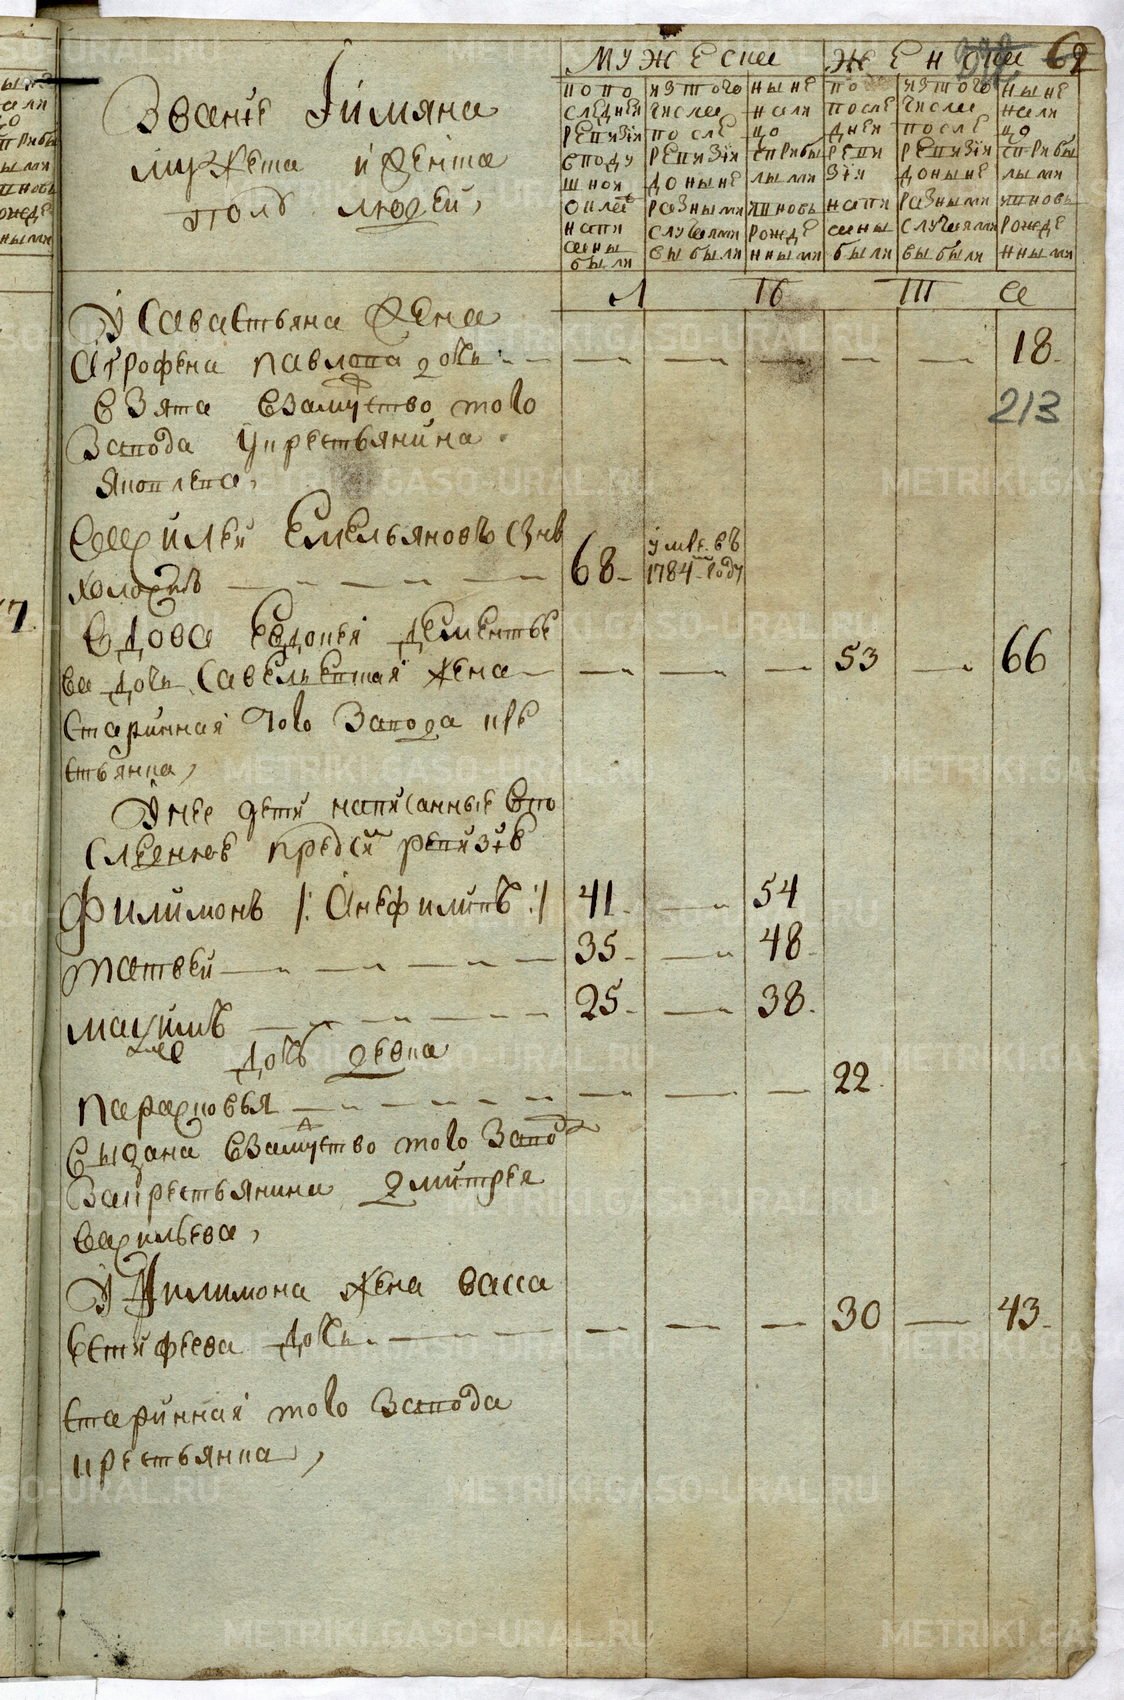 62
Звание Jимяна
мужеска иженска
полу людей,
МУЖЕСКИ
ЖЕНСКИ
попо следней ревизiи вподушной окладе написаны были
изтого числа после ревизiи доныне разными случаями выбыли
ныне налицо сприбылыми ивновь рожденными
по последней ревизiи написаны были
изтого числа после ревизiи доныне разными случаями выбыли
ныне налицо сприбылыми ивновь рожденными
У Савастьяна жена
Агрофена Павлова дочь 18
213
взята взамужство того
завода укрестьянина
Яковлева,
Василей Емельяновъ снъ
холостъ 68 умре въ 1784 году
вдова Евдокея Дементье
ва дочь Савельевская жена 53 66
старинная того завода кре
стьянка,
Унее дети написанные впо
следнюю пред сим ревизiю
Филимонъ /: Анефимъ :/ 41 54
Матвей 35 48
Максимъ 25 38
дочь девка
Парасковья 22
выдана взамужство того заво
закрестьянина Дмитрея
Васильева,
У Филимона жена Васса
Естифеева дочь 30 43
старинная того завода
крестьянка,
METRIKI.GASO-URAL.RU